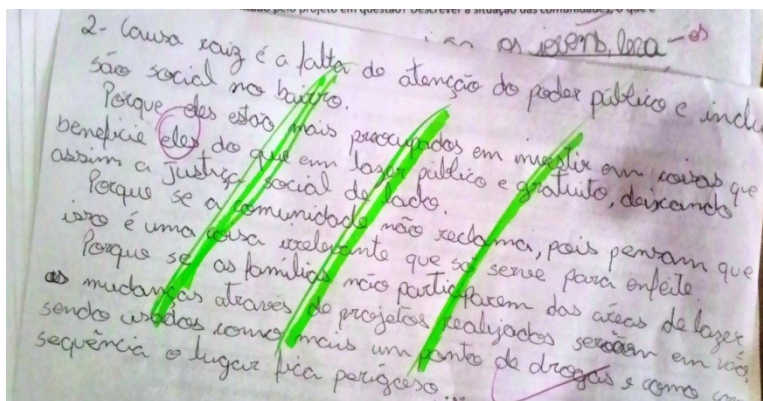 pelo projeto em questão? Descrever a situação das comunidades, o que é
os jovens, leva-os
2- Causa raiz é a falta de atenção do poder público e inclu
são social no bairro.
Porque eles estão mais preocupados em investir em coisas que
beneficie eles do que em lazer público e gratuito, deixando
assim a justiça social de lado.
Porque se a comunidade não reclama, pois pensam que
isso é uma coisa irrelevante que só serve para enfeite.
Porque se as famílias não participarem das áreas de lazer
as mudanças através de projetos realizados serão em vão,
sendo usados como mais um ponto de drogas e como con
sequência o lugar fica perigoso...